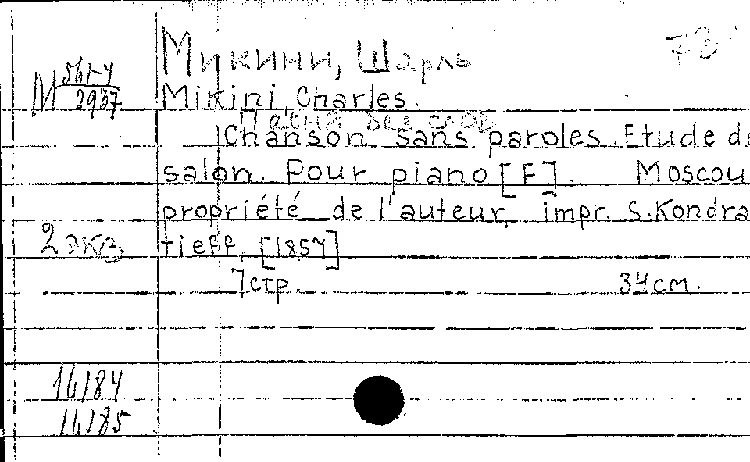 Микини, Шарль
73
М 561-4
2937
Mikini, Charles.
Песня без слов
Chanson sans paroles. Etude de
salon. Pour piano [F]. Moscou
propriété de l'auteur, impr. S. Kondra
2 экз. tieff, [1857]
7 стр. 34 см.
16184
16185